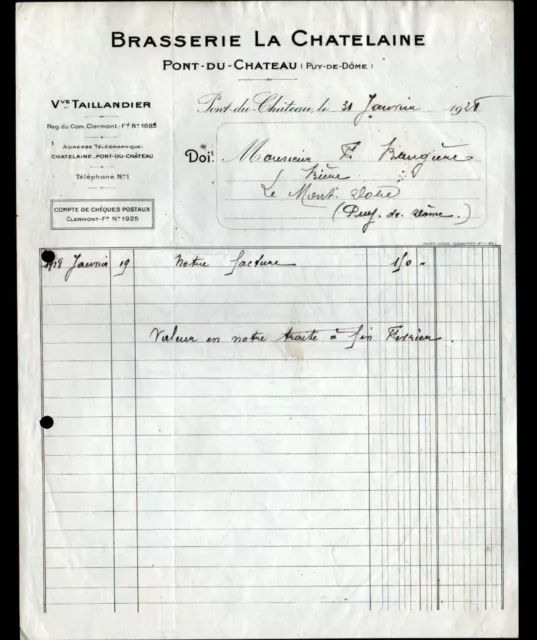 BRASSERIE LA CHATELAINE
PONT-DU-CHATEAU (PUY-DE-DÔME)
Vve TAILLANDIER
Reg. du Com. Clermont-Fd N° 1685
ADRESSE TÉLÉGRAPHIQUE:
CHATELAINE-PONT-DU-CHÂTEAU
Téléphone N° 1
COMPTE DE CHÈQUES POSTAUX
CLERMONT-Fd N° 1925
Pont-du-Château, le 31 Janvier 1928
Doit Monsieur
Bière
Le Mont Dore
(Puy de Dôme.)
1928 Janvier 19 Notre facture 150 "
Valeur en notre traite à fin Février.